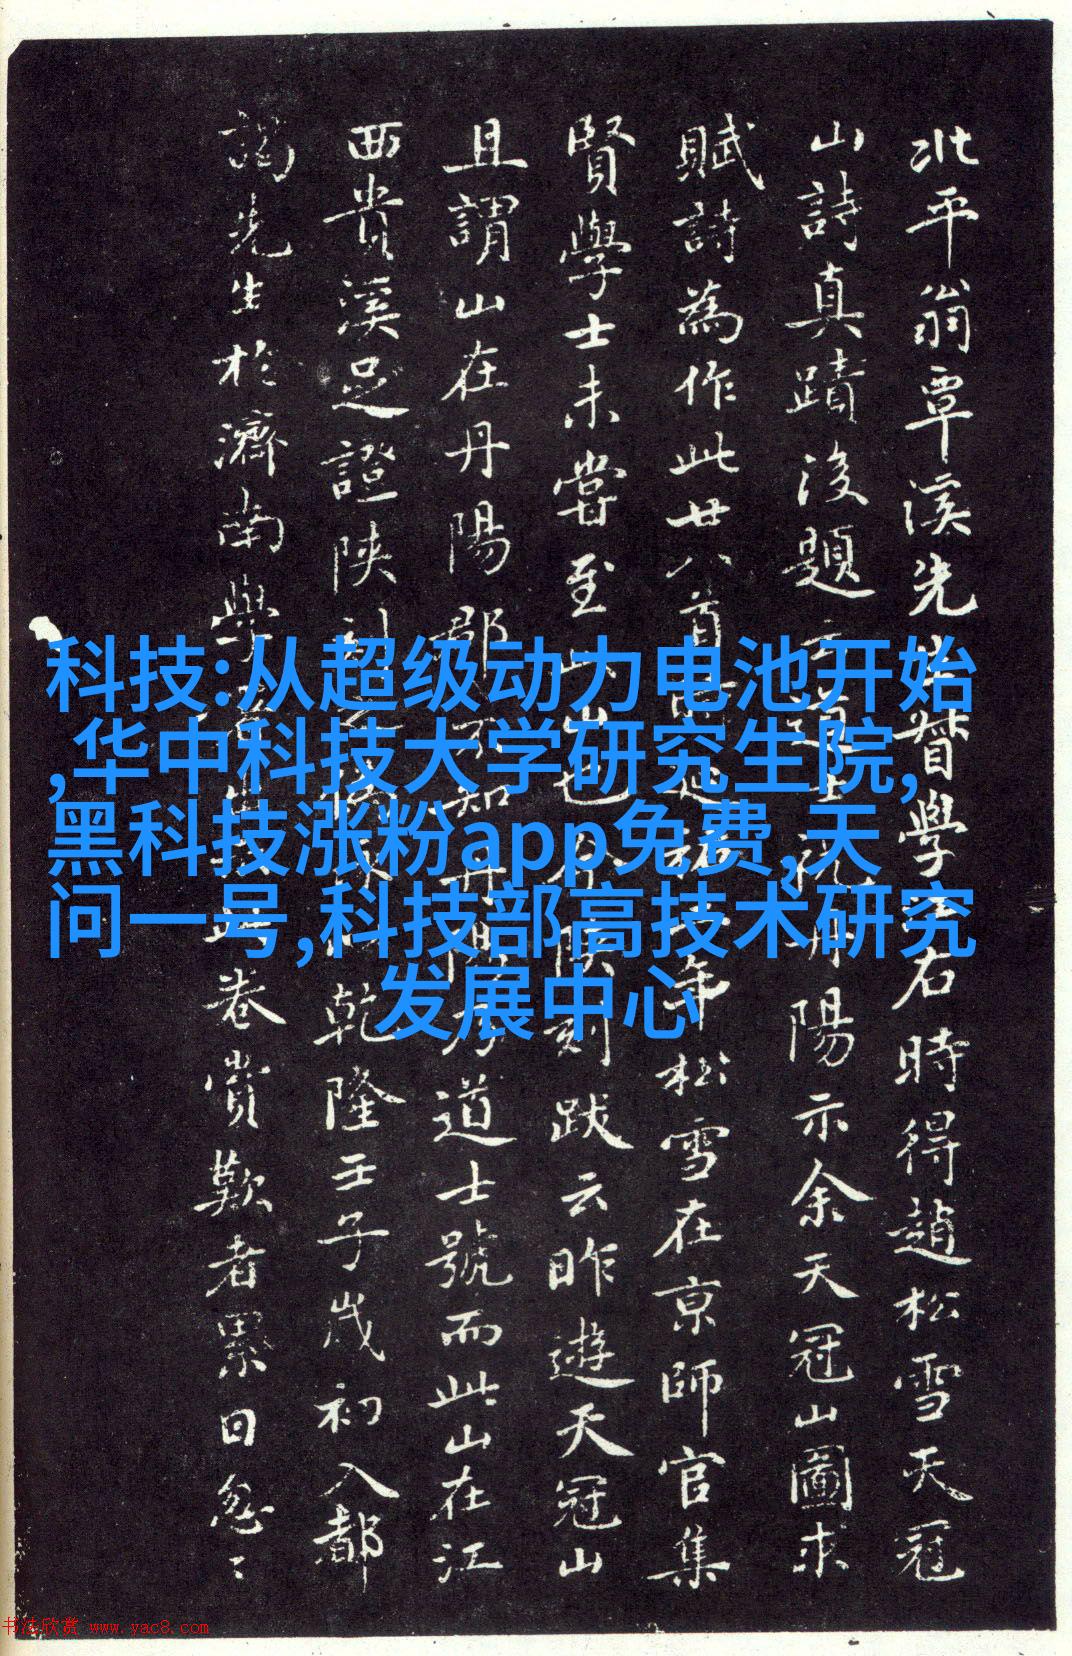 北平翁覃溪先生督學江右時得趙松雪天冠
山詩真蹟後題云道士祝丹陽示余天冠山圖求
賦詩為作此廿八首
松雪在京師官集
賢學士未嘗至此山也
陝刻跋云昨遊天冠山
且謂山在丹陽郡不知丹陽乃道士號而此山在江
西貴溪足證陝刻之
乾隆壬子歲初入都
謁先生於濟南學
此卷賞歎者累日忽〻
科技:从超级动力电池开始
,华中科技大学研究生院,
黑科技涨粉app免费,天
问一号,科技部高技术研究
发展中心
书法欣赏 www.yac8.com